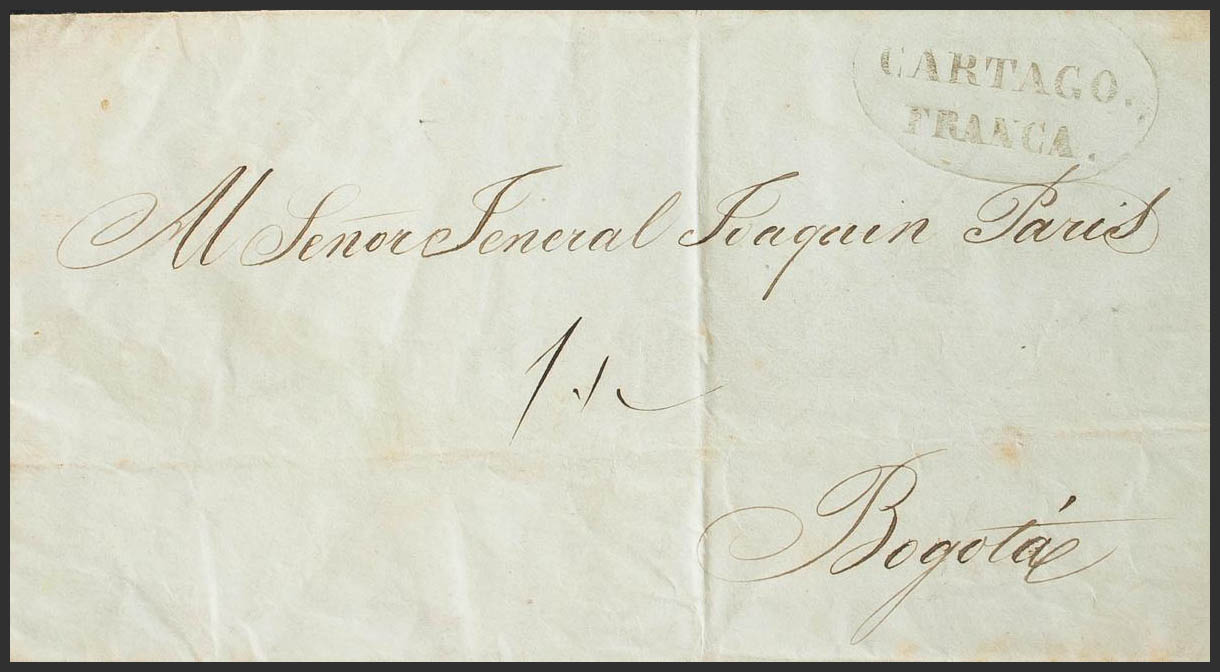 CARTAGO.
FRANCA.
Al Señor Jeneral Joaquin Paris
Bogotá